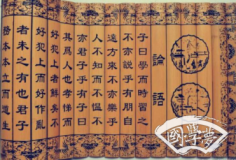 論語
子曰學而時習之
不亦說乎有朋自
遠方來不亦樂乎
人不知而不慍不
亦君子乎有子曰
其爲人也孝悌而
好犯上者鮮矣不
好犯上而好作亂
者未之有也君子
務本本立而道生
國學夢